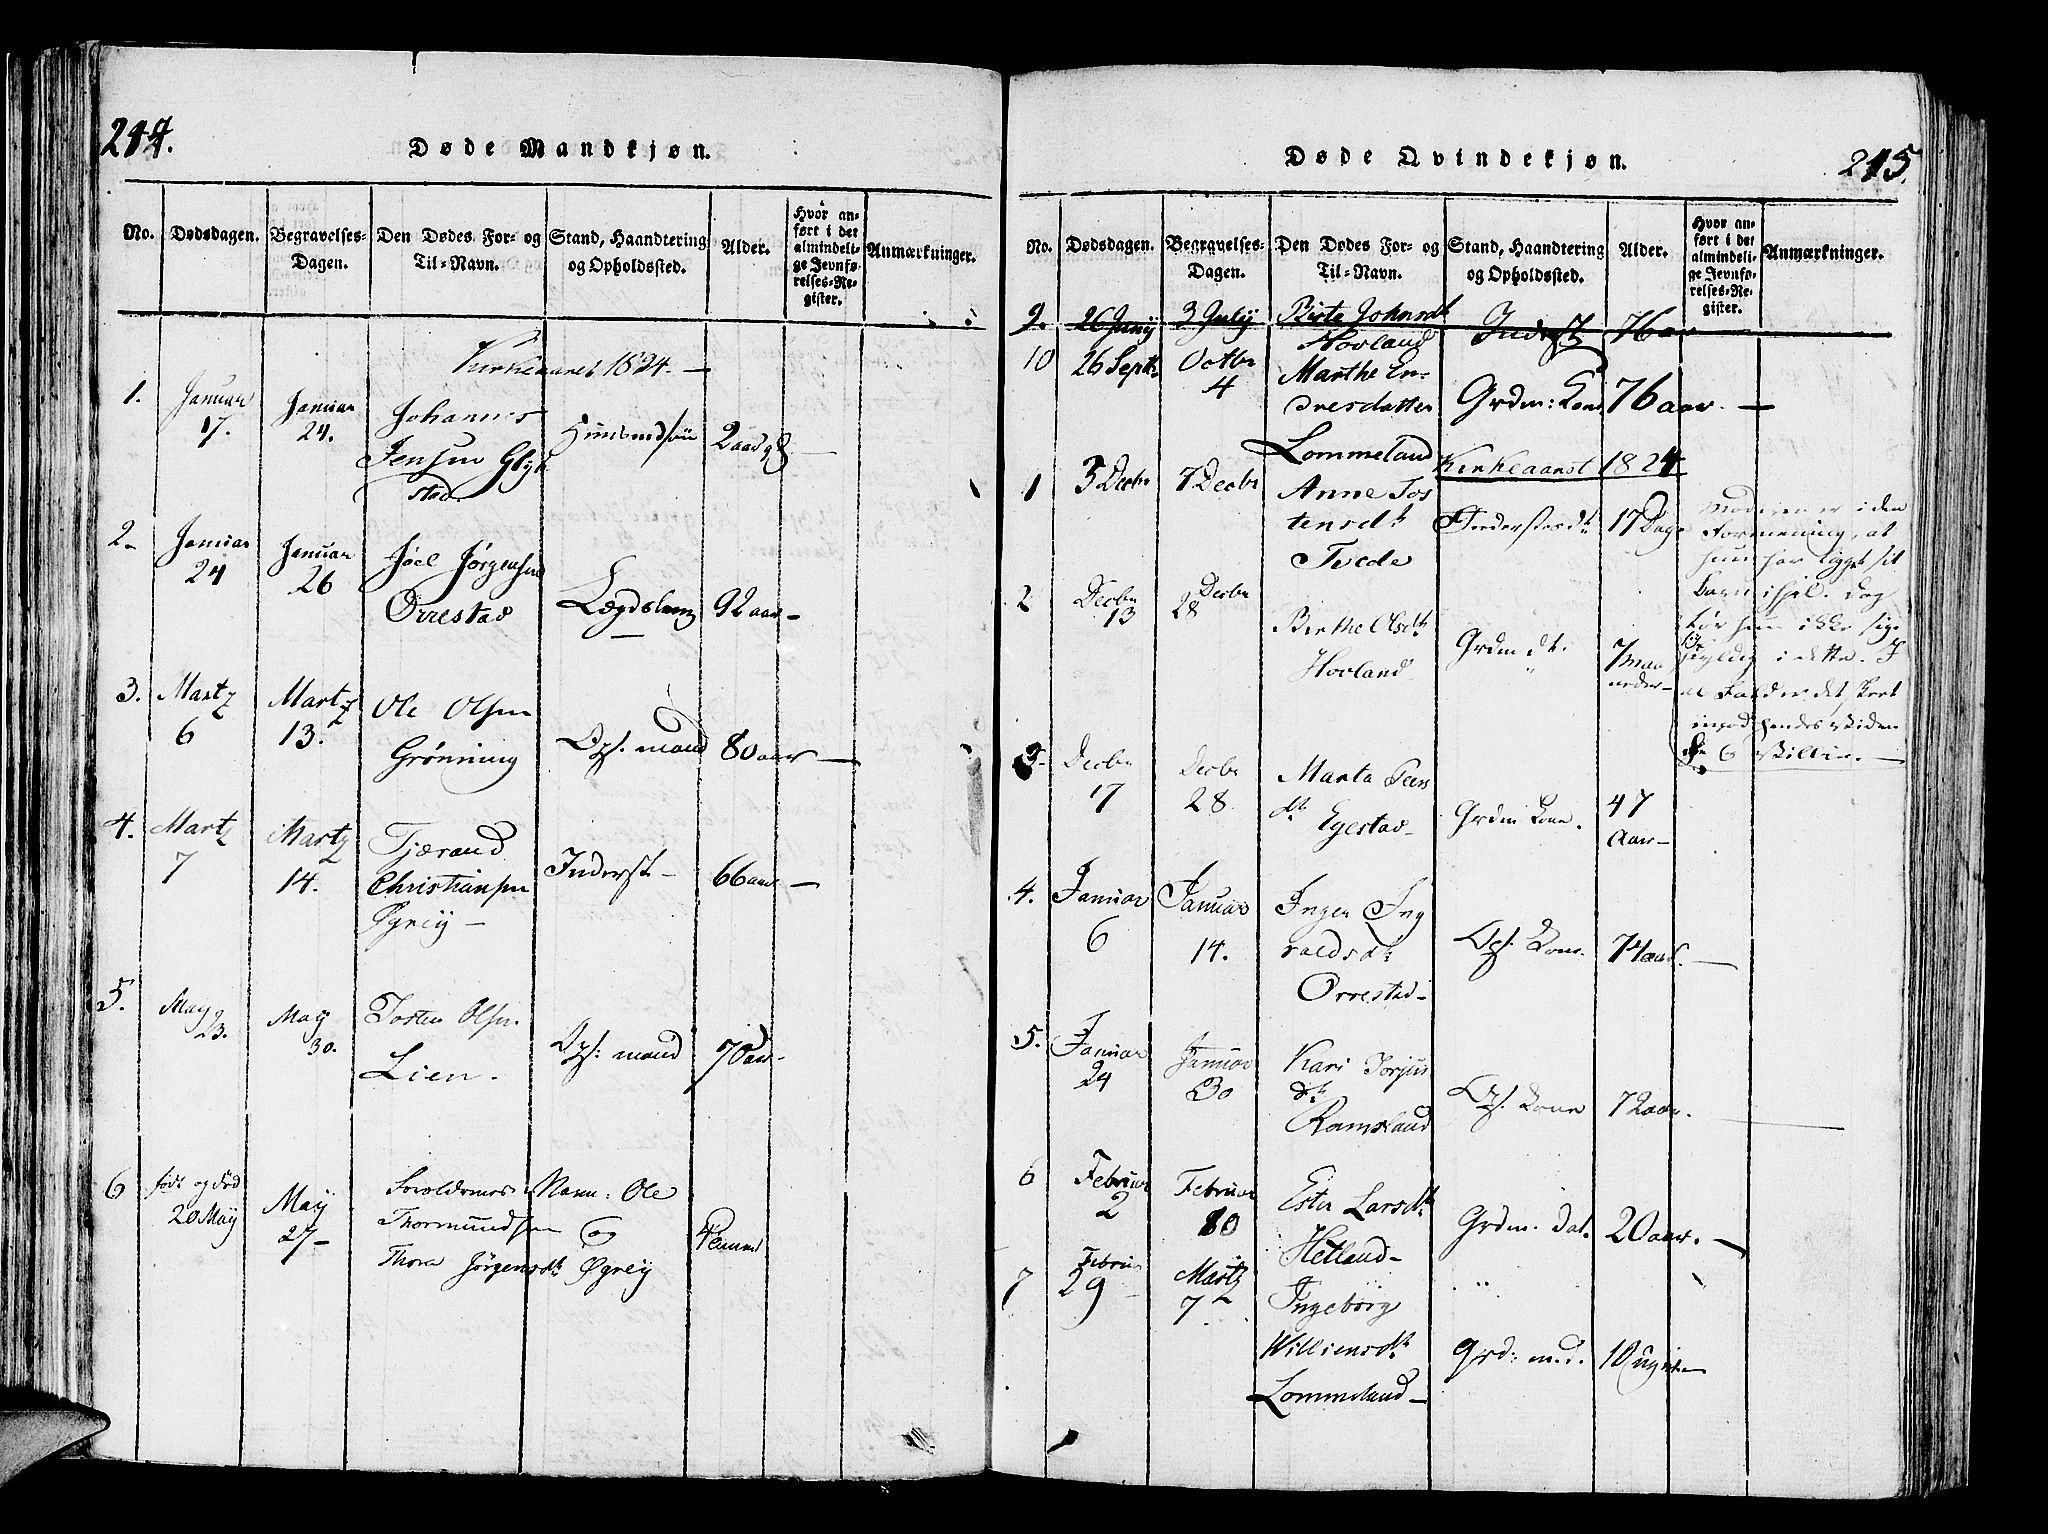 214.
Døde Mandkjøn.
No. Dødsdagen. Begravelses-Dagen. Den Dødes For- og Til-Navn. Stand, Haandtering og Opholdssted. Alder. Hvor anført i det almindelige Jevnførelses-Register. Anmærkninger.
Kirkeaaret 1824. —
1. Januar 17. Januar 24.
Johannes
Jensen
stad.
2 aar
2. Januar 24 Januar 26
Joel Jørgensen
Orrestad
Lægdslem 92 aar —
3. Martz 6 Martz 13.
Ole Olsen
Grønning
Ops. mand 80 aar —
4. Martz 7 Martz 14.
Tjærand
Christiansen
Øgreij —
Inderst — 66 aar —
5. May 23. May 30.
Tosten Olsen
Lien.
Ops: mand 70 aar.
6 født og død 20 Maij Maij 27 —
Forældrenes Navn: Ole
Thormundsen og
Thora Jørgensdt. Øgreij
215.
Døde Qvindekjøn.
No. Dødsdagen. Begravelses-Dagen. Den Dødes For- og Til-Navn. Stand, Haandtering og Opholdssted. Alder. Hvor anført i det almindelige Jevnførelses-Register. Anmærkninger.
9. 26 Junij 3 Julij
Birte Johnsdt.
Hovland
Inderst 76 aar
10 26 Septbr Octbr 4
Marthe En-
dresdatter
Lommeland
Grdm: Kone 76 aar. —
Kirkeaaret 1824
1 3 Decbr 7 Decbr
Anne Tos
tensdt.
Tvede
17 Dage
Moderen er i den
Formening, at
hun har ligget sit
Barn ihjel. Dog
tør hun ikke sige
sig skyldig i dette. I
2 Decbr 13 Decbr 28
Birthe Olsdt.
Hovland
Grdm dt. 7 maa
neder —
3. Decbr 17 Decbr 28.
Marta Peers
dt. Egestad —
Grdm Kone. 47
Aar —
4. Januar 6 Januar 14.
Inger Ing
valdsdt.
Orrestad —
Ops. Kone. 74 aar. —
5. Januar 24 Januar 30
Kari Torjus
dt.
Ramsland
Ops. Kone 72 aar.
6 Februar 2 Februar 10
Ester Larsdt.
Hetland —
Grdm. dat. 20 aar. —
7 Februar 29 Martz 7
Ingeborg
Williamsdt.
Lommeland —
Grd: m. d. 10 uger